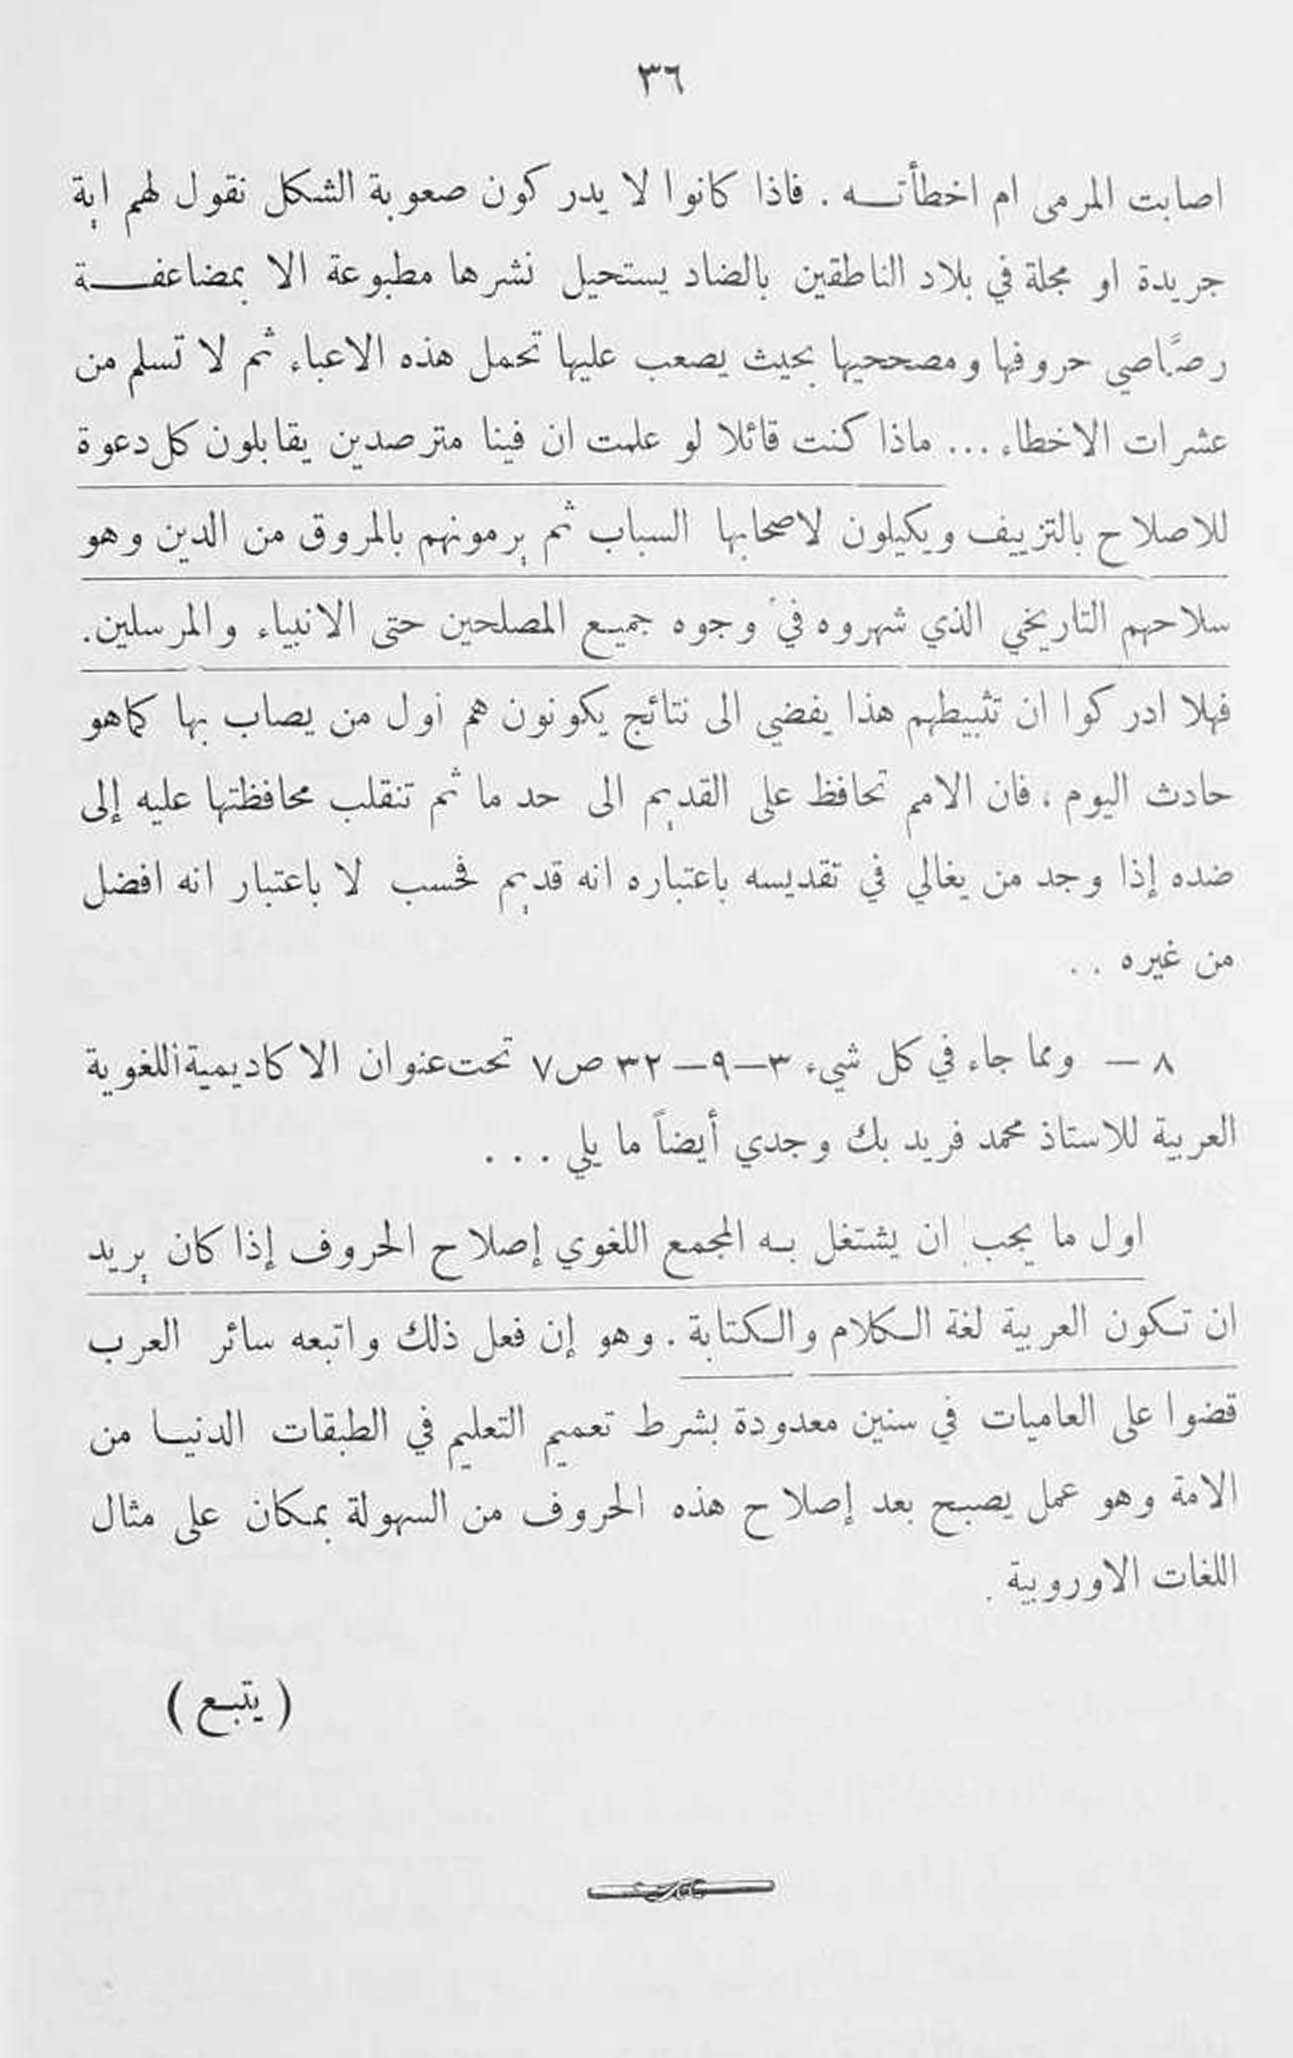 ٣٦
اصابت المرمى ام اخطأته . فاذا كانوا لا يدركون صعوبة الشكل نقول لهم اية
جريدة او مجلة في بلاد الناطقين بالضاد يستحيل نشرها مطبوعة الا بمضاعفة
رصَّاصي حروفها ومصححيها بحيث يصعب عليها تحمل هذه الاعباء ثم لا تسلم من
عشرات الاخطاء ... ماذا كنت قائلا لو علمت ان فينا مترصدين يقابلون كل دعوة
للاصلاح بالتزييف ويكيلون لاصحابها السباب ثم يرمونهم بالمروق من الدين وهو
سلاحهم التاريخي الذي شهروه في وجوه جميع المصلحين حتى الانبياء والمرسلين.
فهلا ادركوا ان تثبيطهم هذا يفضي الى نتائج يكونون هم اول من يصاب بها كماهو
حادث اليوم ، فان الامم تحافظ على القديم الى حد ما ثم تنقلب محافظتها عليه إلى
ضده إذا وجد من يغالي في تقديسه باعتباره انه قديم فحسب لا باعتبار انه افضل
من غيره . .
٨ – ومما جاء في كل شيء ٣–٩–٣٢ ص٧ تحت عنوان الاكاديمية اللغوية
العربية للاستاذ محمد فريد بك وجدي أيضاً ما يلي . . .
اول ما يجب ان يشتغل به المجمع اللغوي إصلاح الحروف إذا كان يريد
ان تكون العربية لغة الكلام والكتابة . وهو إن فعل ذلك واتبعه سائر العرب
قضوا على العاميات في سنين معدودة بشرط تعميم التعليم في الطبقات الدنيا من
الامة وهو عمل يصبح بعد إصلاح هذه الحروف من السهولة بمكان على مثال
اللغات الاوروبية .
( يتبع )